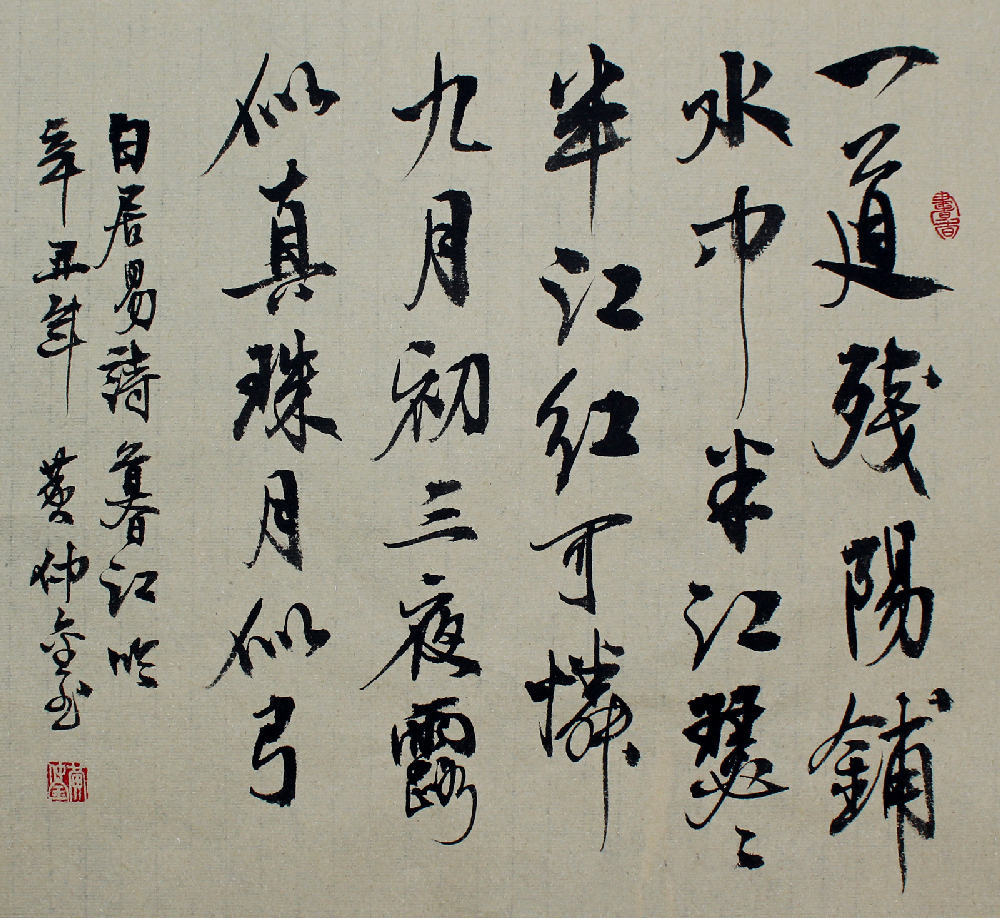 一道残陽鋪
水中半江瑟〻
半江红可憐
九月初三夜露
似真珠月似弓
白居易詩暮江吟
辛丑年 黄仲金书